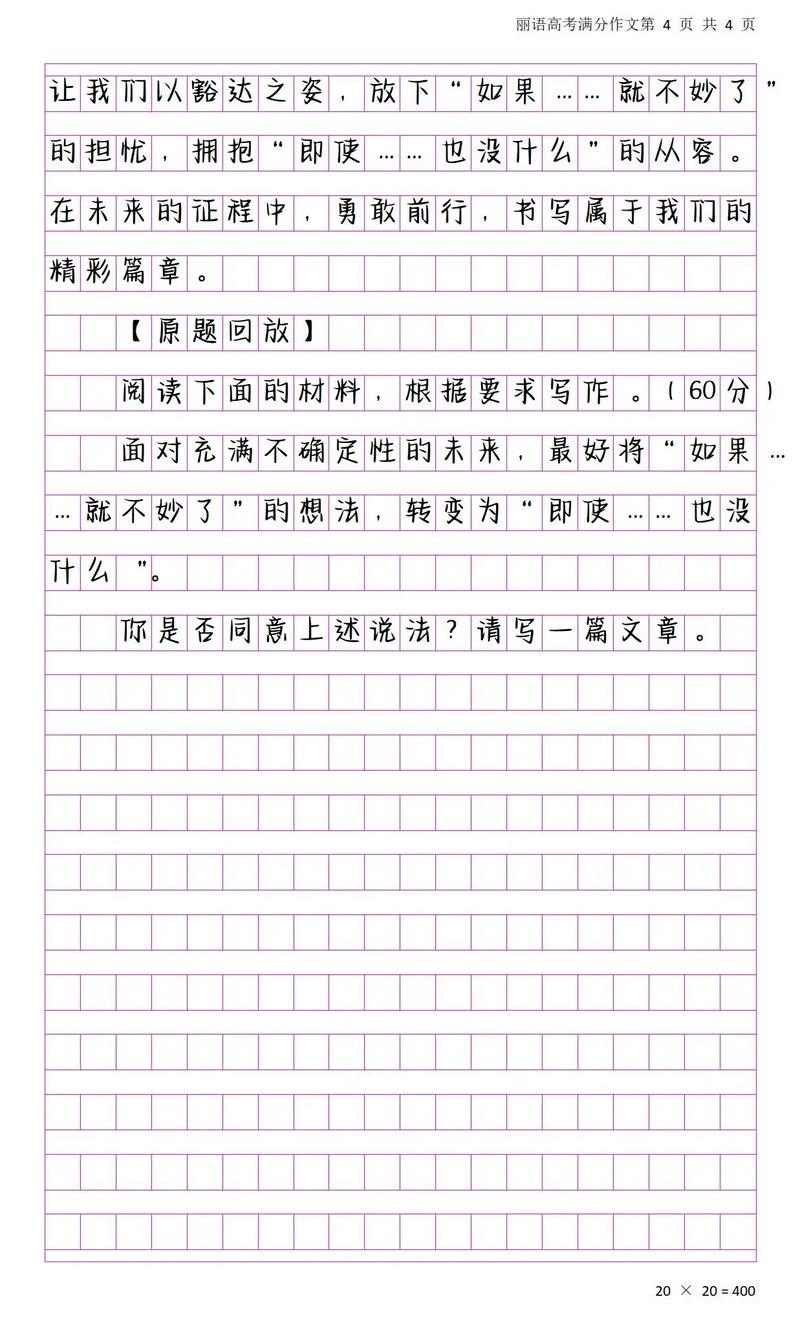 丽语高考满分作文第 4 页 共 4 页
让我们以豁达之姿，放下“如果……就不妙了”
的担忧，拥抱“即使……也没什么”的从容。
在未来的征程中，勇敢前行，书写属于我们的
精彩篇章。
【原题回放】
阅读下面的材料，根据要求写作。（60分）
面对充满不确定性的未来，最好将“如果…
…就不妙了”的想法，转变为“即使……也没
什么”。
你是否同意上述说法？请写一篇文章。
20 × 20 = 400